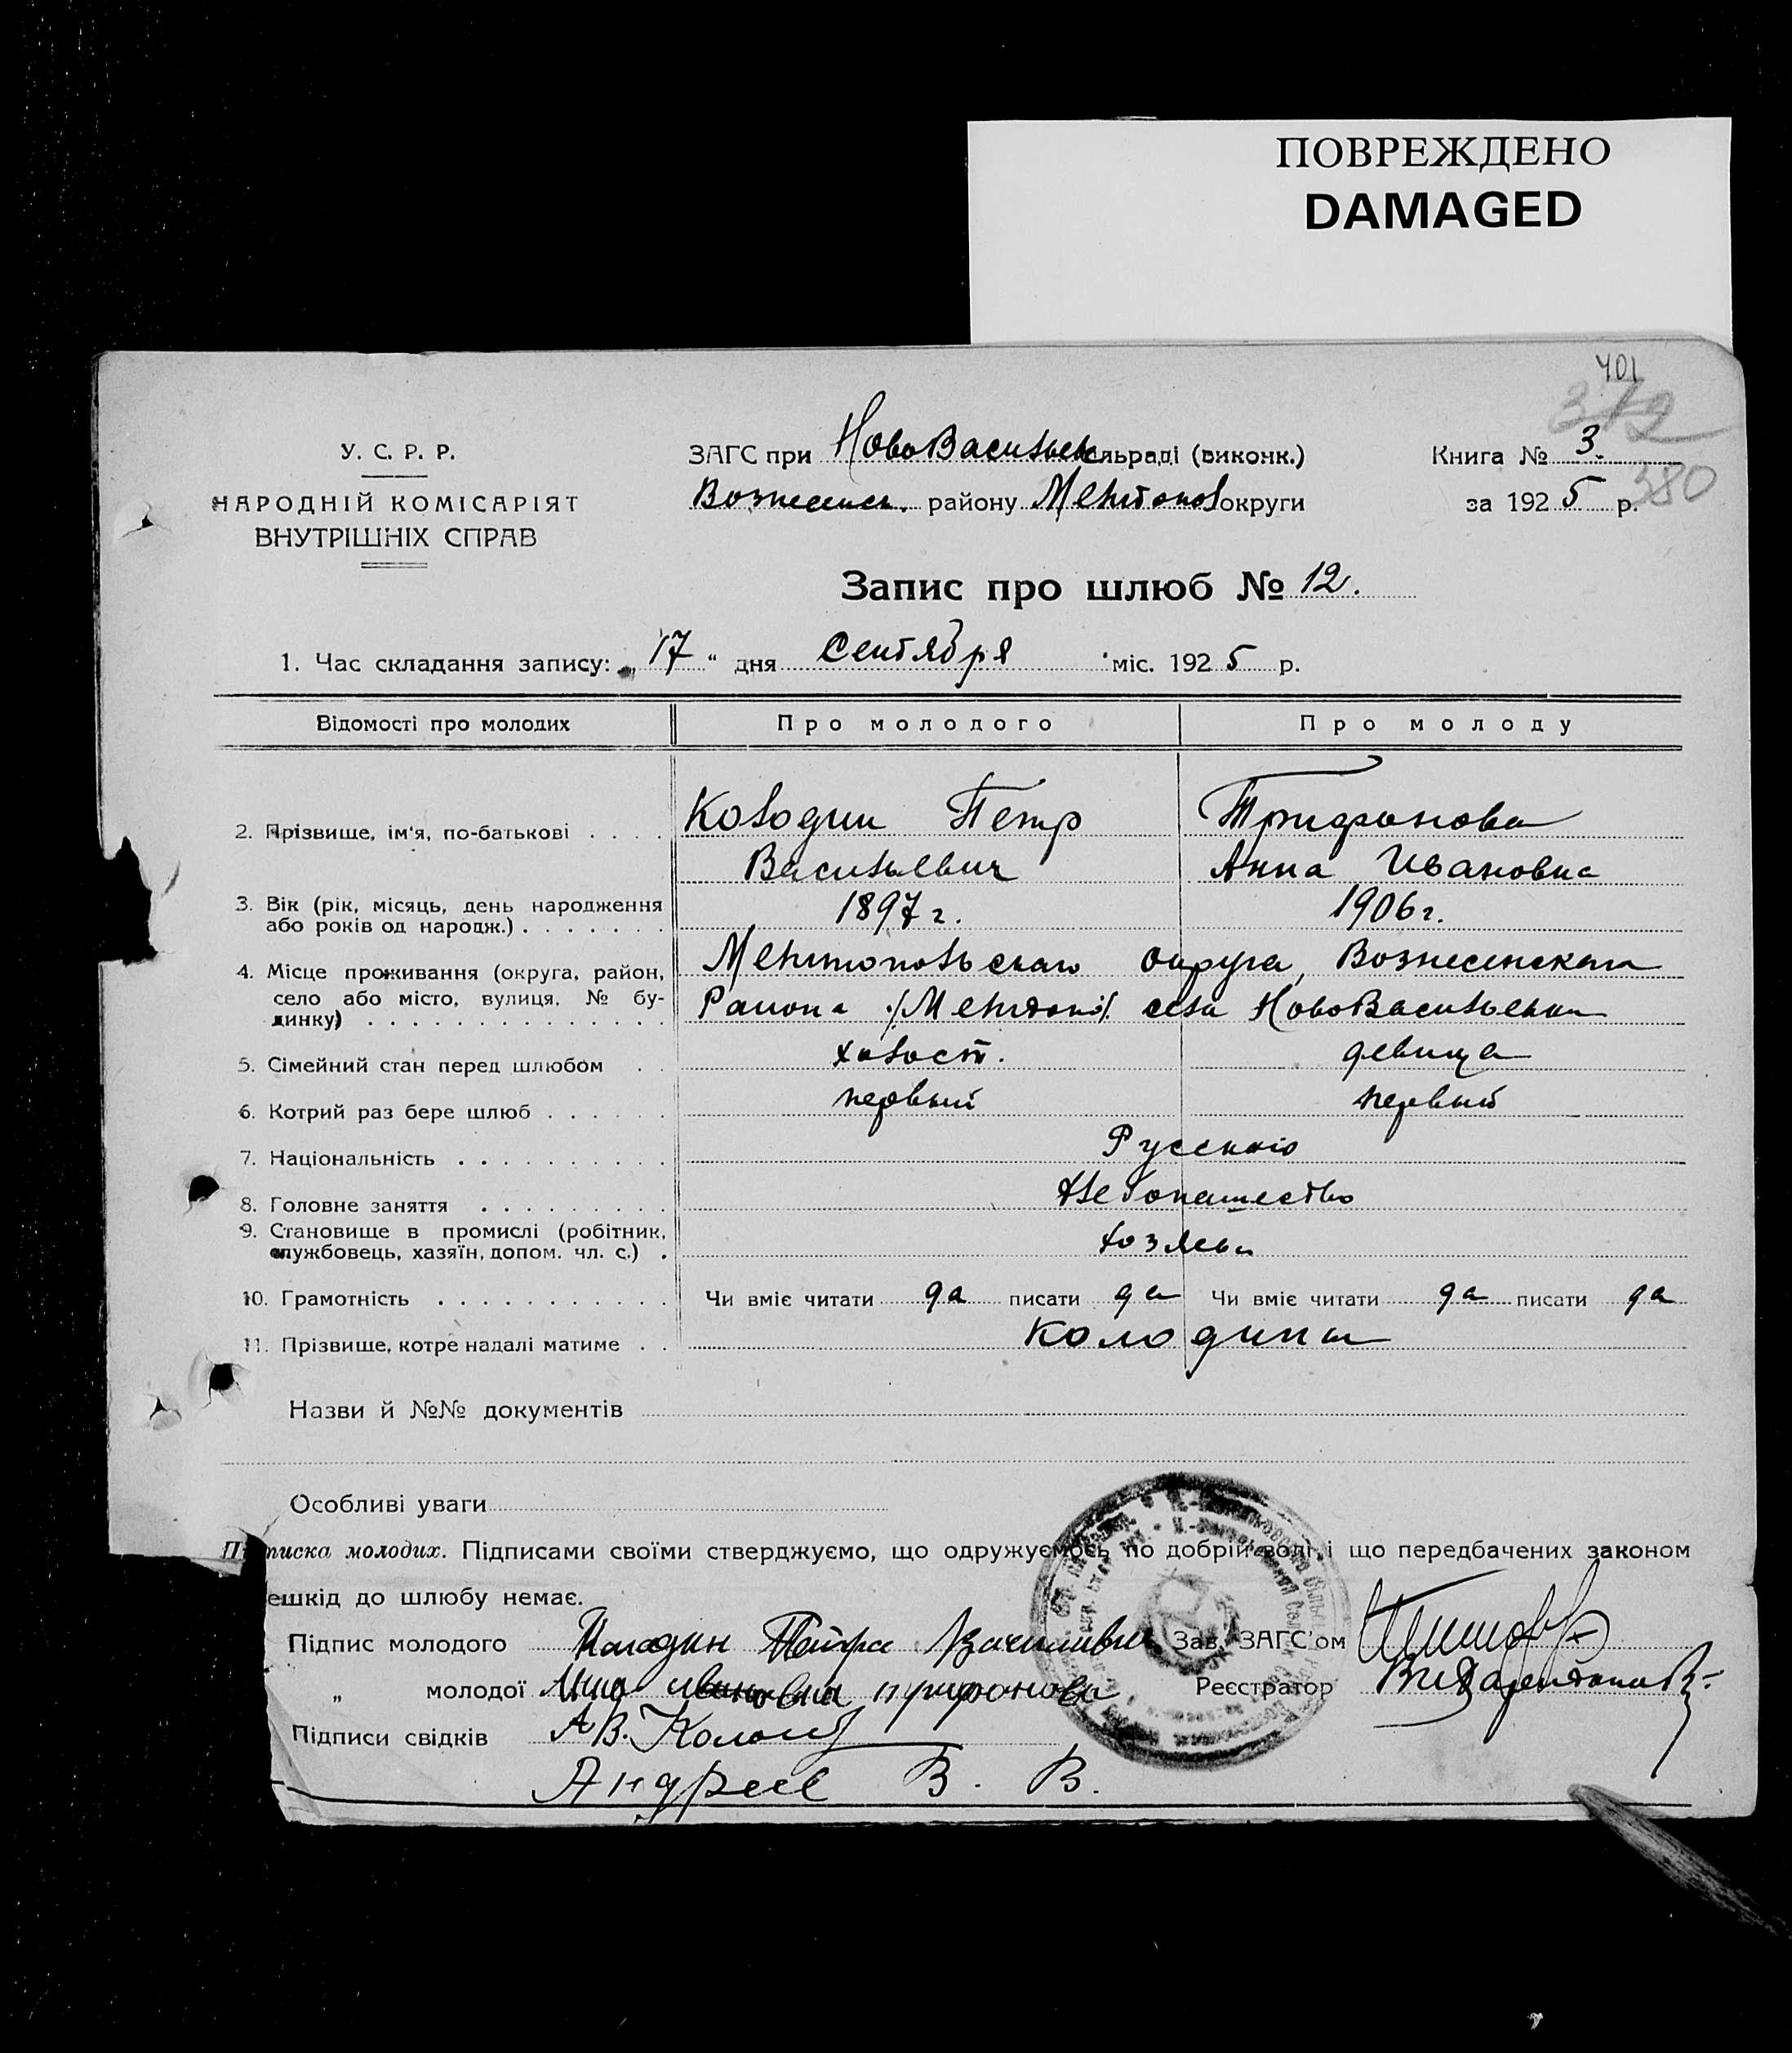 ПОВРЕЖДЕНО
DAMAGED
401
372
380
У. С. Р. Р.
НАРОДНІЙ КОМІСАРІЯТ
ВНУТРІШНІХ СПРАВ
ЗАГС при НовоВасильев сільраді (виконк.)
Вознесенск. району Мелитопол округи
Книга № 3.
за 1925 р.
Запис про шлюб № 12.
1. Час складання запису: „17" дня Сентября міс. 1925 р.
Відомості про молодих Про молодого Про молоду
2. Прізвище, ім'я, по-батькові . . . . Колодин Петр Трифонова
Васильевич Анна Ивановна
3. Вік (рік, місяць, день народження
або років од народж.) . . . . . . . 1897 г. 1906 г.
4. Місце проживання (округа, район, Мелитопольскаго округа, Вознесенскаго
село або місто, вулиця, № бу-
динку) . . . . . . . . . . . . . Района /Мелитопол/. села НовоВасильевки
5. Сімейний стан перед шлюбом . . холост. девица
6. Котрий раз бере шлюб . . . . . . первый первый
7. Національність . . . . . . . . . . Русскаго
8. Головне заняття . . . . . . . . . Хлебопашество
9. Становище в промислі (робітник,
службовець, хазяїн, допом. чл. с.) . хозяева
10. Грамотність . . . . . . . . . . . Чи вміє читати да писати да Чи вміє читати да писати да
11. Прізвище, котре надалі матиме . . Колодины
Назви й №№ документів
Особливі уваги
Підписка молодих. Підписами своїми стверджуємо, що одружуємось по добрій волі, і що передбачених законом
ешкід до шлюбу немає.
Підпис молодого Каладин Пётра Васильевич Зав. ЗАГС'ом
„ молодої Анна ивановна трифонова Реєстратор
Підписи свідків А В.
Андреев В. В.